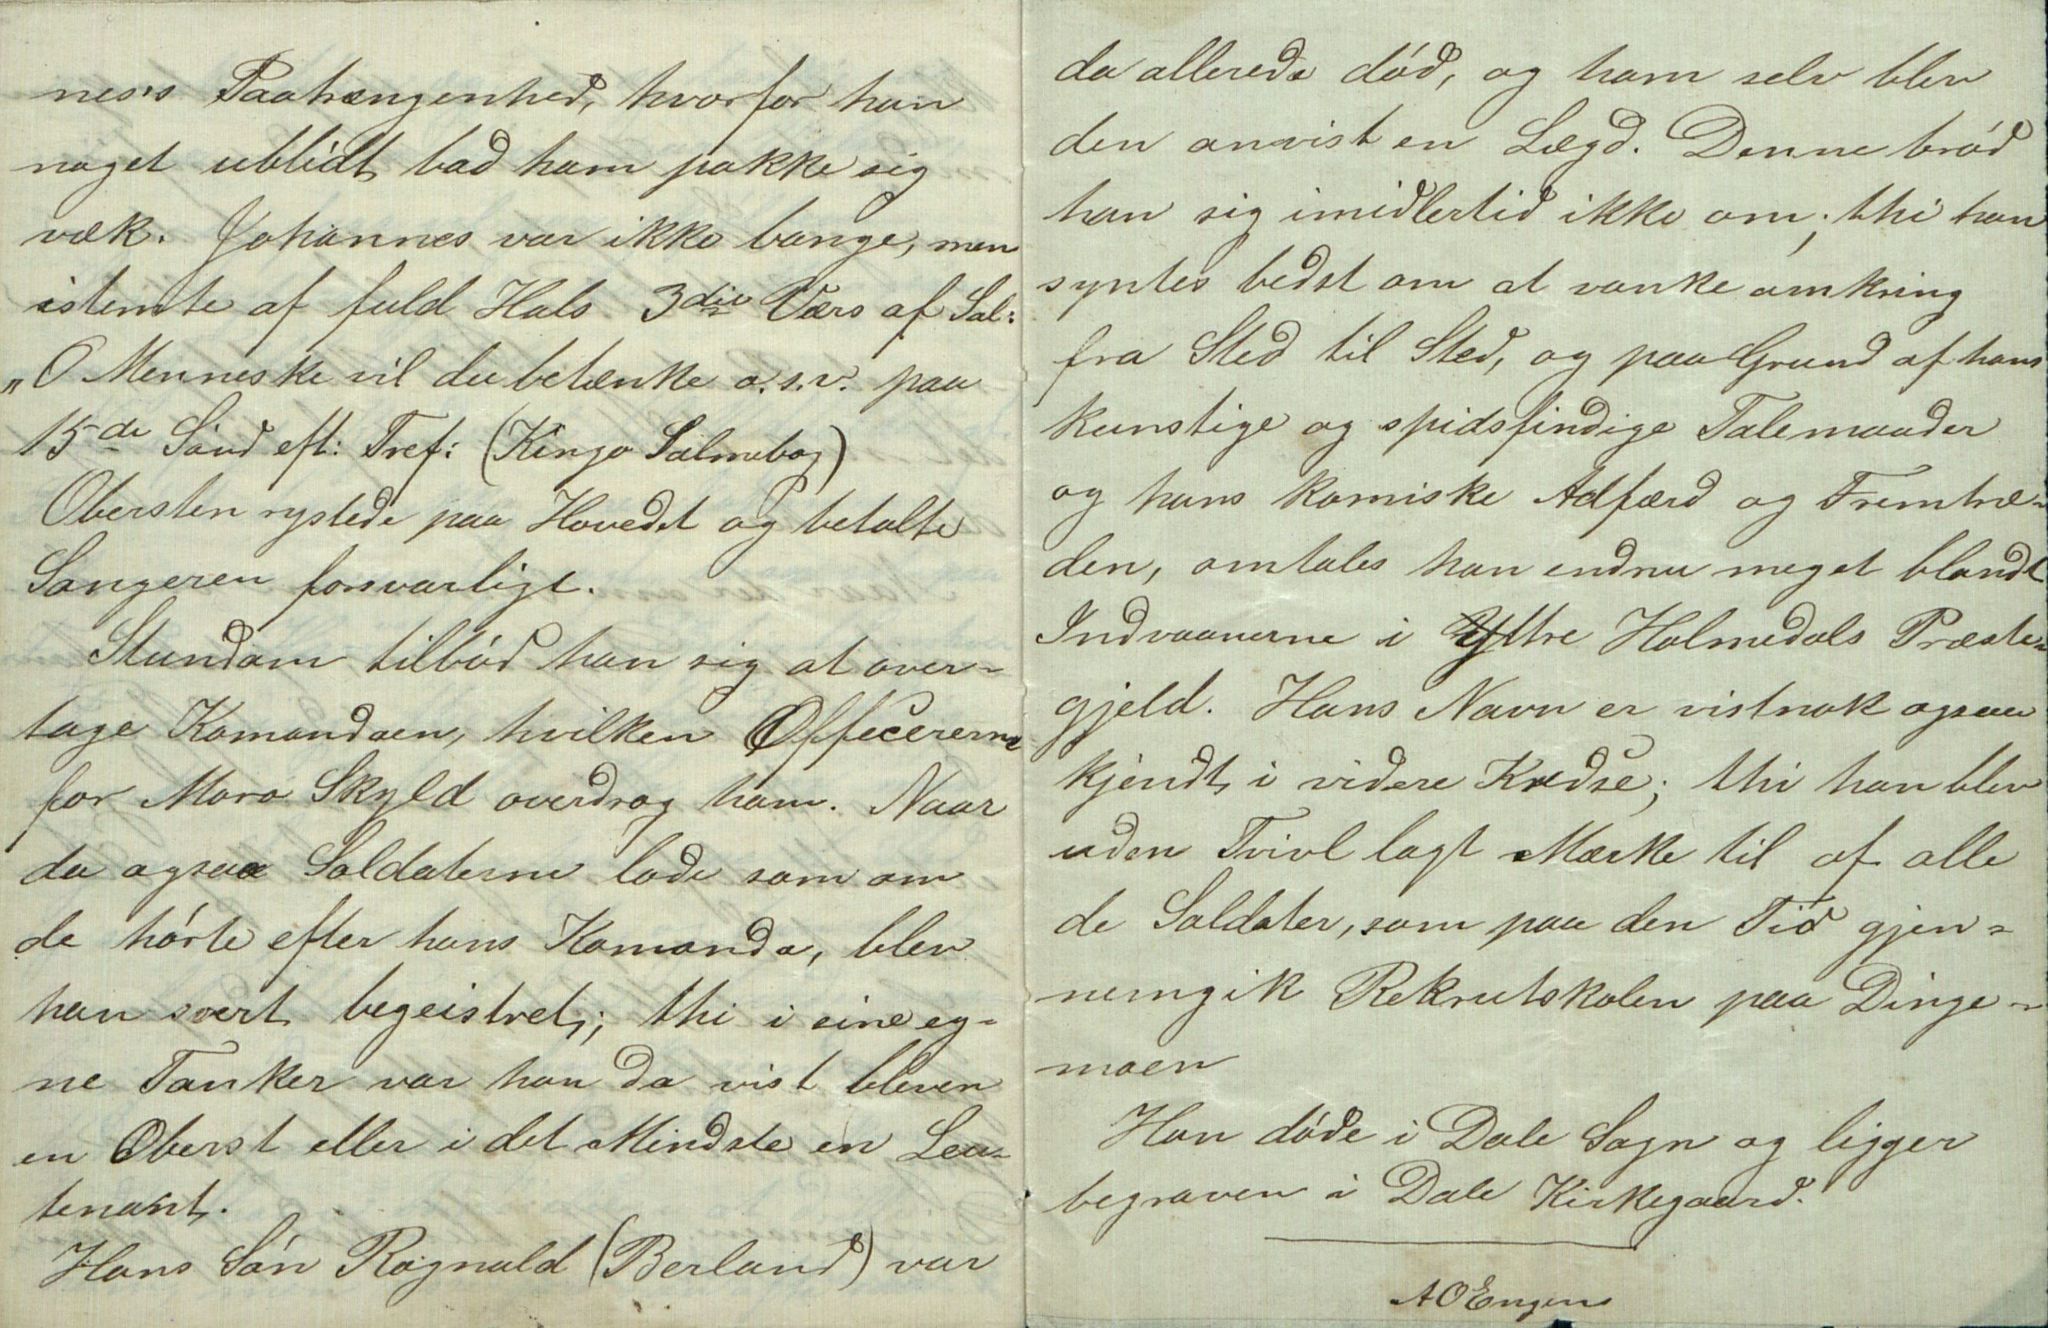 nes's Paahængenhed, hvorfor han
noget ublidt bad ham pakke sig
væk. Johannes var ikke bange, men
istemte af fuld Hals 3die Værs af Sal:
„O Menneske vil du betænke o.s.v. paa
15de Sønd eft: Tref: (Kingo Salmebog)
Obersten rystede paa Hovedet og betalte
Sangeren forsvarligt.
Stundom tilbød han sig at over-
tage Komandoen, hvilken Offecererne
for Moro Skyld overdrog ham. Naar
da ogsaa Soldaterne lode som om
de hørte efter hans Komando, blev
han svert begeistret; thi i sine eg-
ne Tanker var han da vist bleven
en Oberst eller i det Mindste en Leu-
tenant.
Hans Søn Rognald (Berland) var
da allerede død, og ham selv blev
den anvist en Lægd. Denne brød
han sig imidlertid ikke om; thi han
syntes bedst om at vanke omkring
fra Sted til Sted, og paa Grund af hans
kunstige og spidsfindige Talemaader
og hans komiske Adfærd og Fremtræ-
den, omtales han endnu meget blandt
Indvaanerne i Yttre Holmedals Præste-
gjeld. Hans Navn er vistnok ogsaa
kjendt i videre Kredse; thi han blev
uden Tvivl lagt Mærke til af alle
de Soldater, som paa den Tid gjen-
nemgik Rekrutskolen paa Dinge-
moen
Han døde i Dale Sogn og ligger
begraven i Dale Kirkegaard.
AOEngen